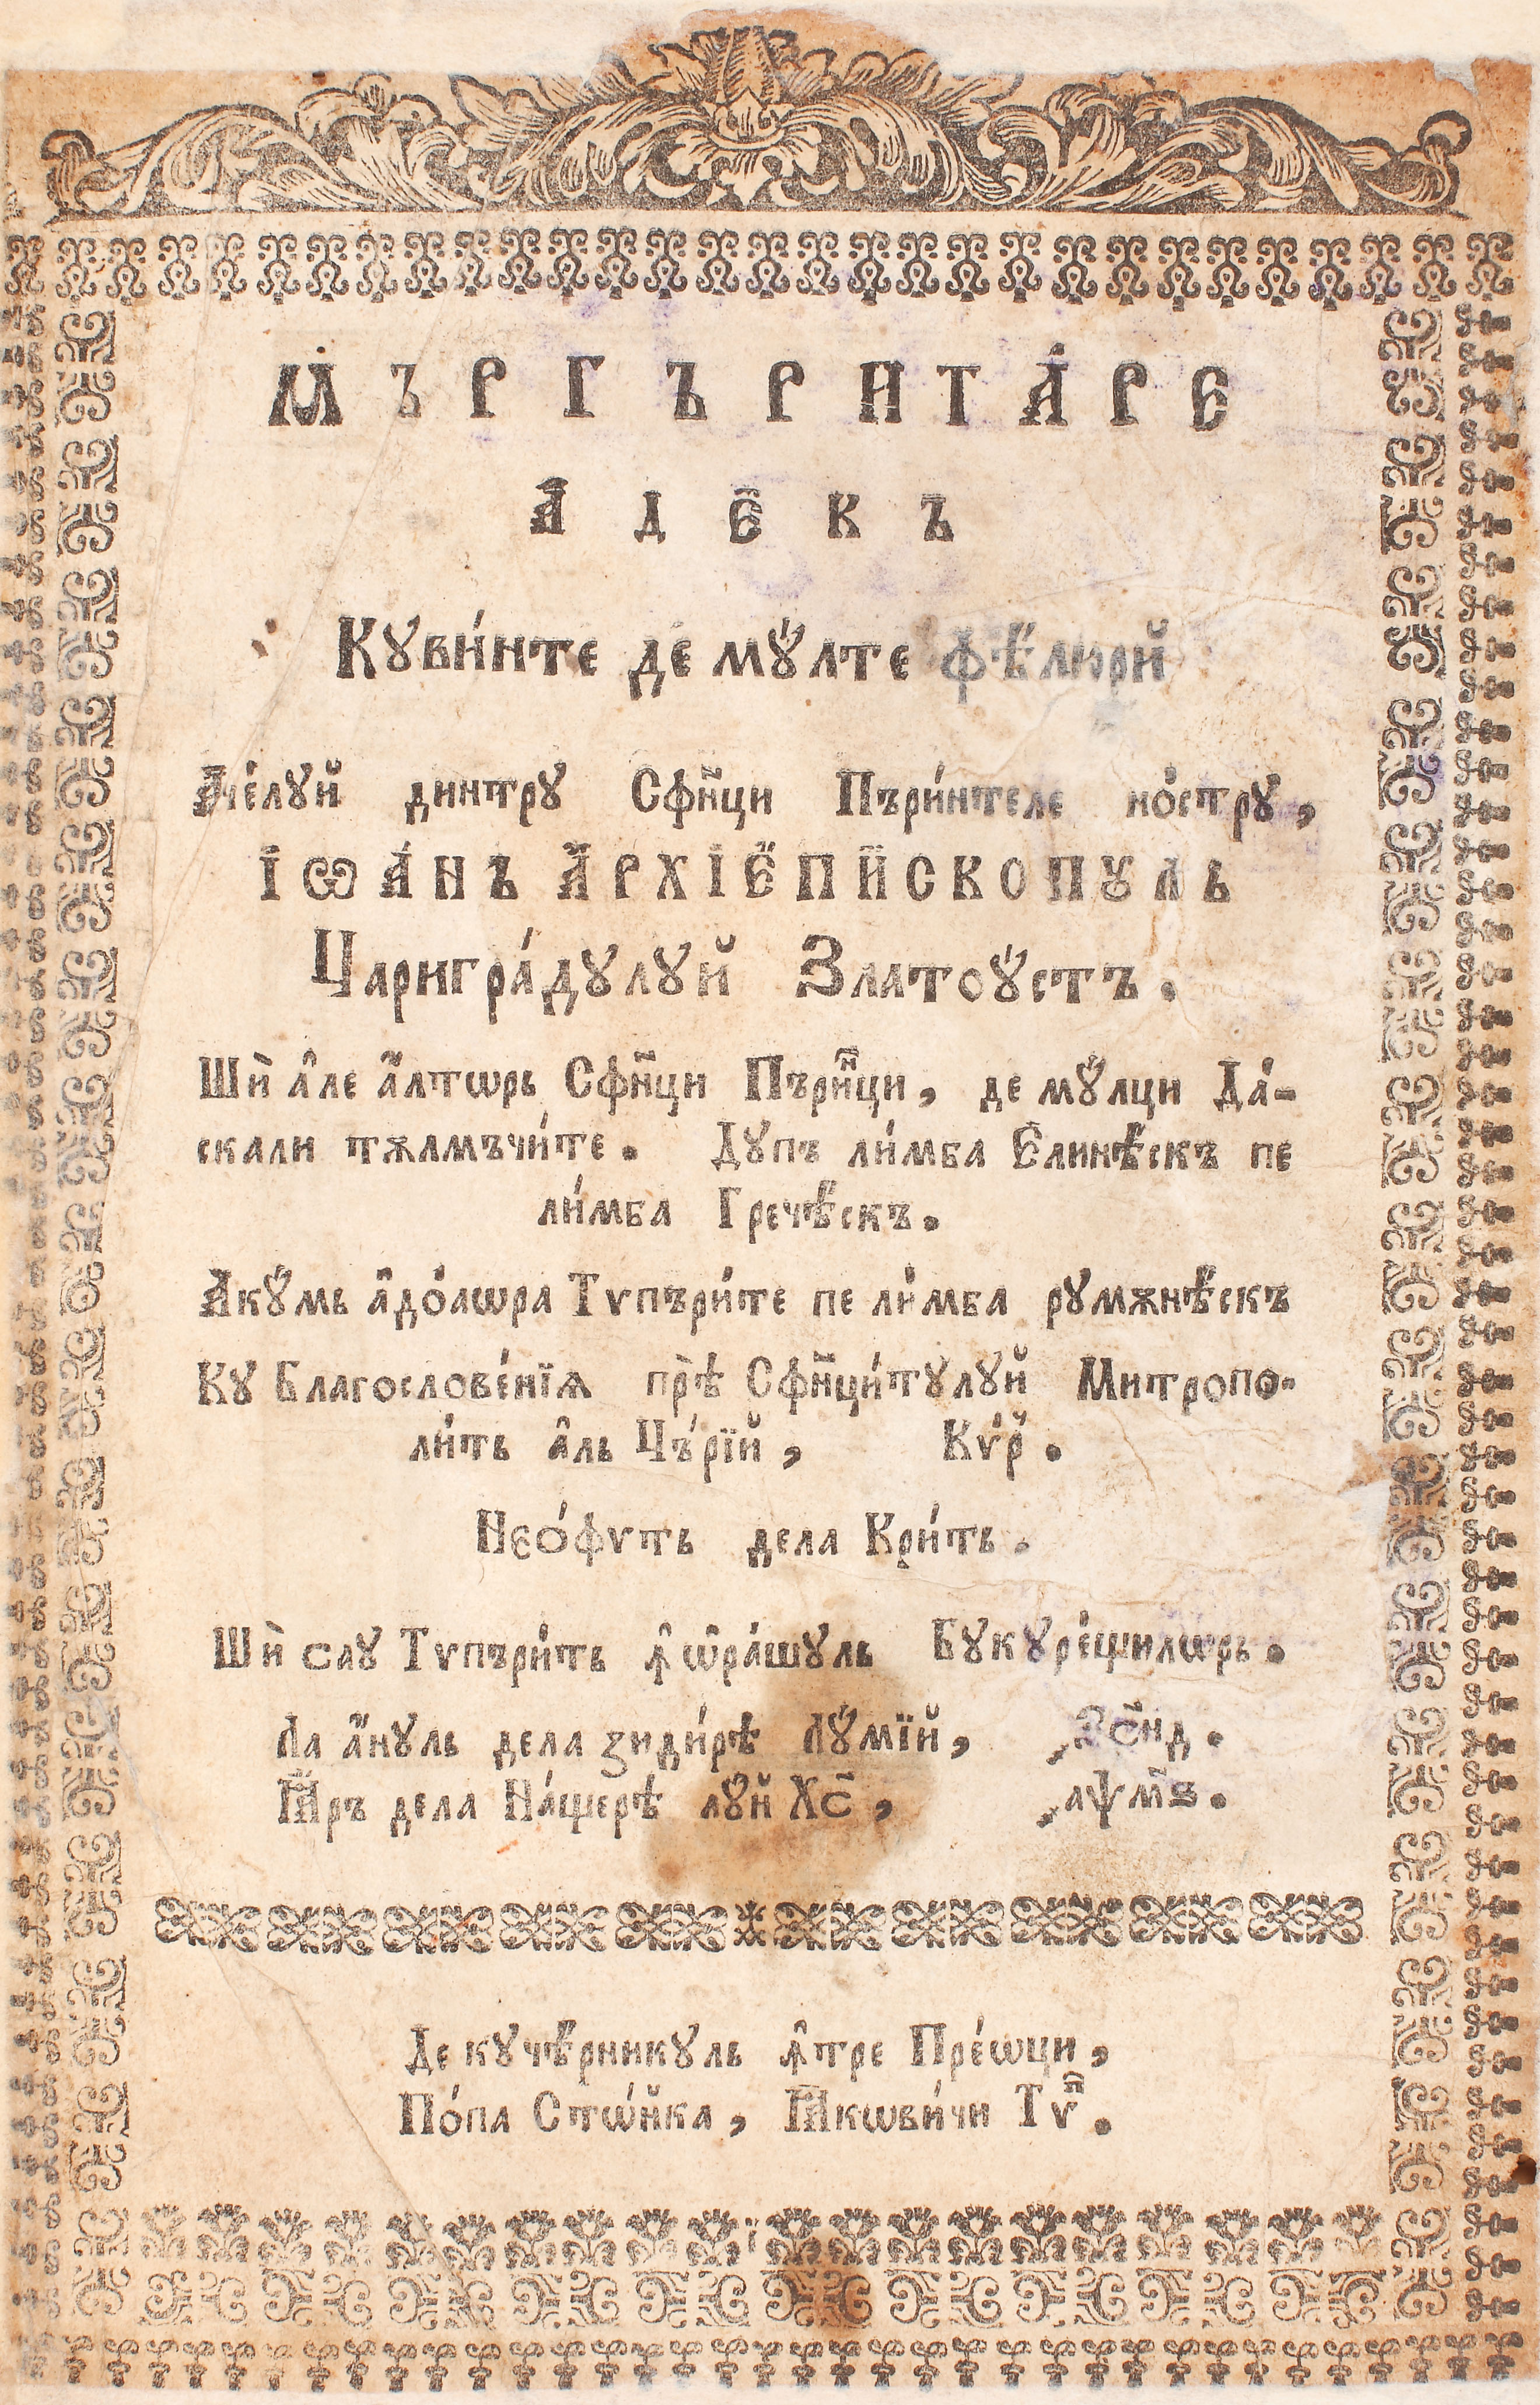 МЪРГЪРИТА́РЕ
А҆ДЕ҆КЪ
Кꙋви́нте де мꙋ́лте фѣ́люрй
Аче́лꙋй динтрꙋ Сфи҃нци Пъри́нтеле но́стрꙋ,
І҆ѠА́НЪ А҆РХІЕ҆ПИ҆СКОПꙊЛЬ
Царигра́дꙋлꙋй Златоꙋ́стъ.
Шѝ а҆ле а҆́лтѡрь Сфи҃нци Пърии҃ци, де мꙋ́лци Да́-
скали тѫлмъчи́те. Дꙋпъ ли́мба Елинѣ́скъ пе
ли́мба Гречѣ́скъ.
Акꙋ́мь а҆до́аѡра Тѵпъри́те пе ли́мба рꙋмѫнѣ́скъ
Кꙋ Благослове́нїѧ прѣ́ Сфи҃нци́тꙋлꙋй Митропо-
ли́ть а҆ль Цъ́рїй, Кѵ́р.
Нео́фѵть дела Кри́ть.
Шѝ сау Тѵпъри́ть ꙟ҆ ѡ҆ра́шꙋль Бꙋкꙋре́щилѡрь.
Ла а҆́нꙋль дела зиди́рѣ Лꙋ́мїй, ҂зс҃нд.
Ꙗ҆ръ дела На́щерѣ лꙋ́й Хс҃, ҂аѱм҃ѕ.
Де кꙋчѣ́рникꙋль ꙟ҆тре Пре́ѡци,
По́па Стѡ́йка, Ꙗ҆кѡви́чи Тѵⷫ҇.